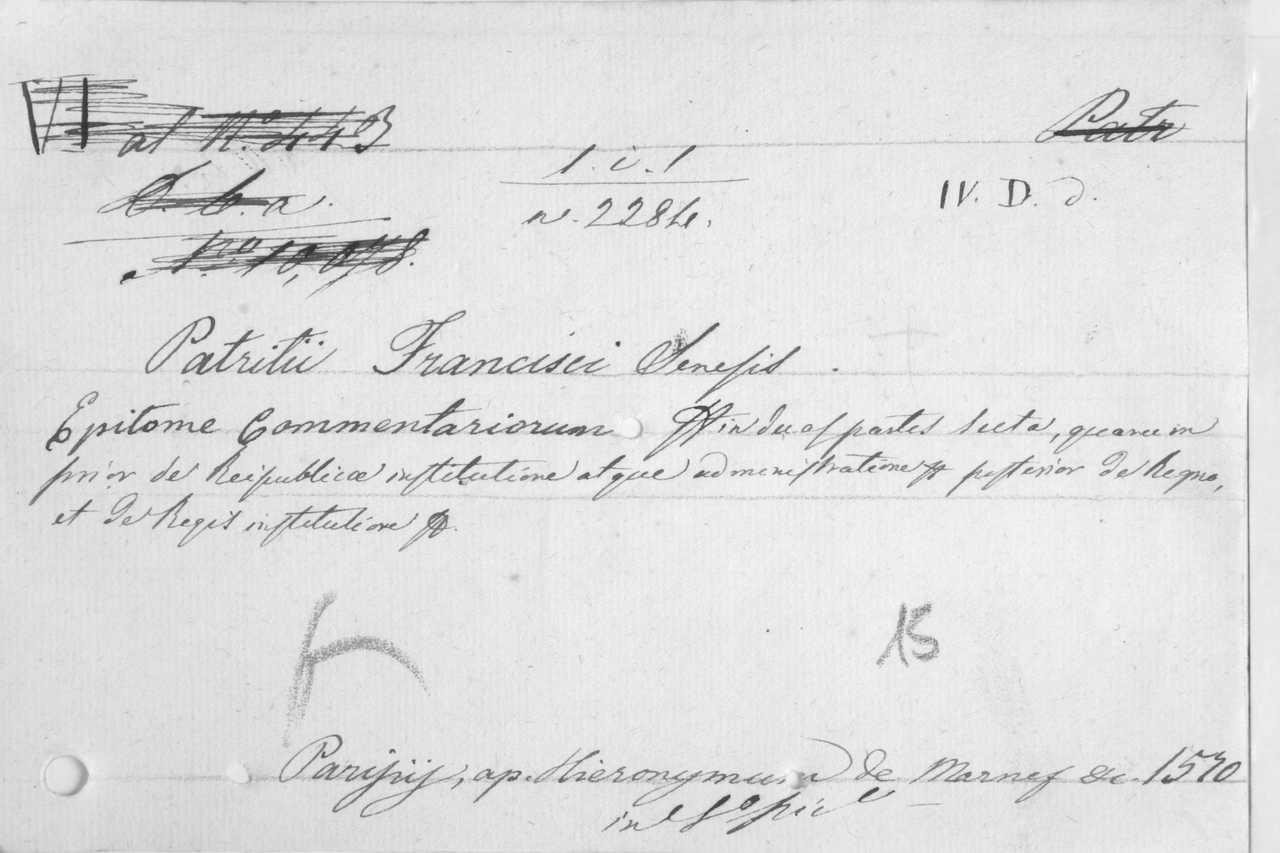 al N.º 443
Patr
D. b. a.
1. i. 1
IV. D. d.
Nº 10,078.
n. 2284.
Patritii Francisci Senesis.
Epitome Commentariorum in duas partes secta, quarum
prior de Reipublicæ institutione atque administratione posterior de Regno,
et de Regis institutione
15
Parisiis, ap. Hieronymum de Marnef &c. 1570
in 8º pic